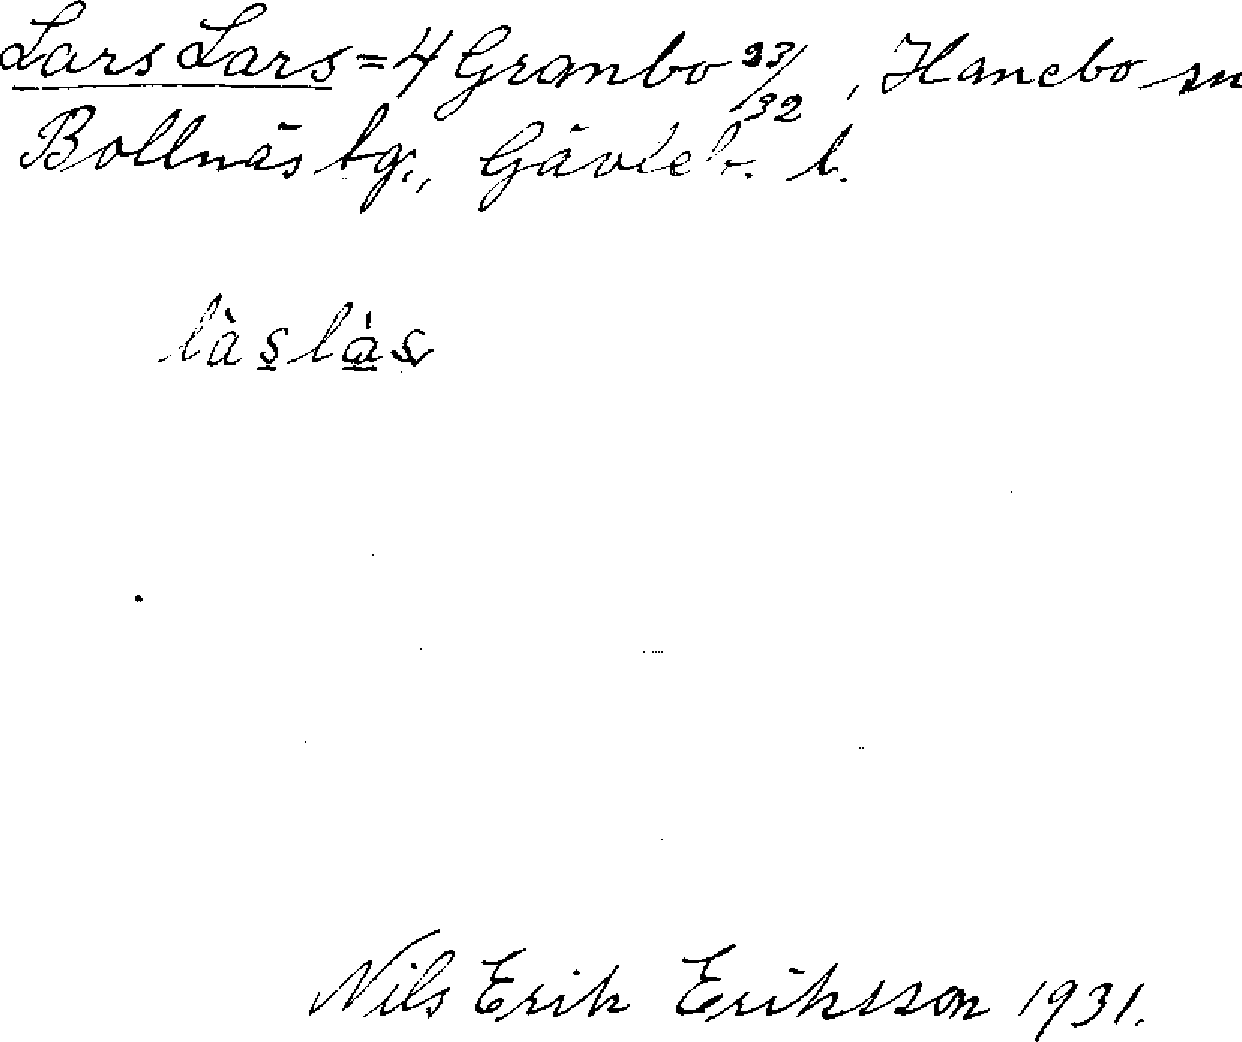 Lars Lars = 4 Granbo 23/32, Hanebo sn
Bollnäs tg., Gävleb. l.
làs̱là̱s
Nils Erik Eriksson 1931.